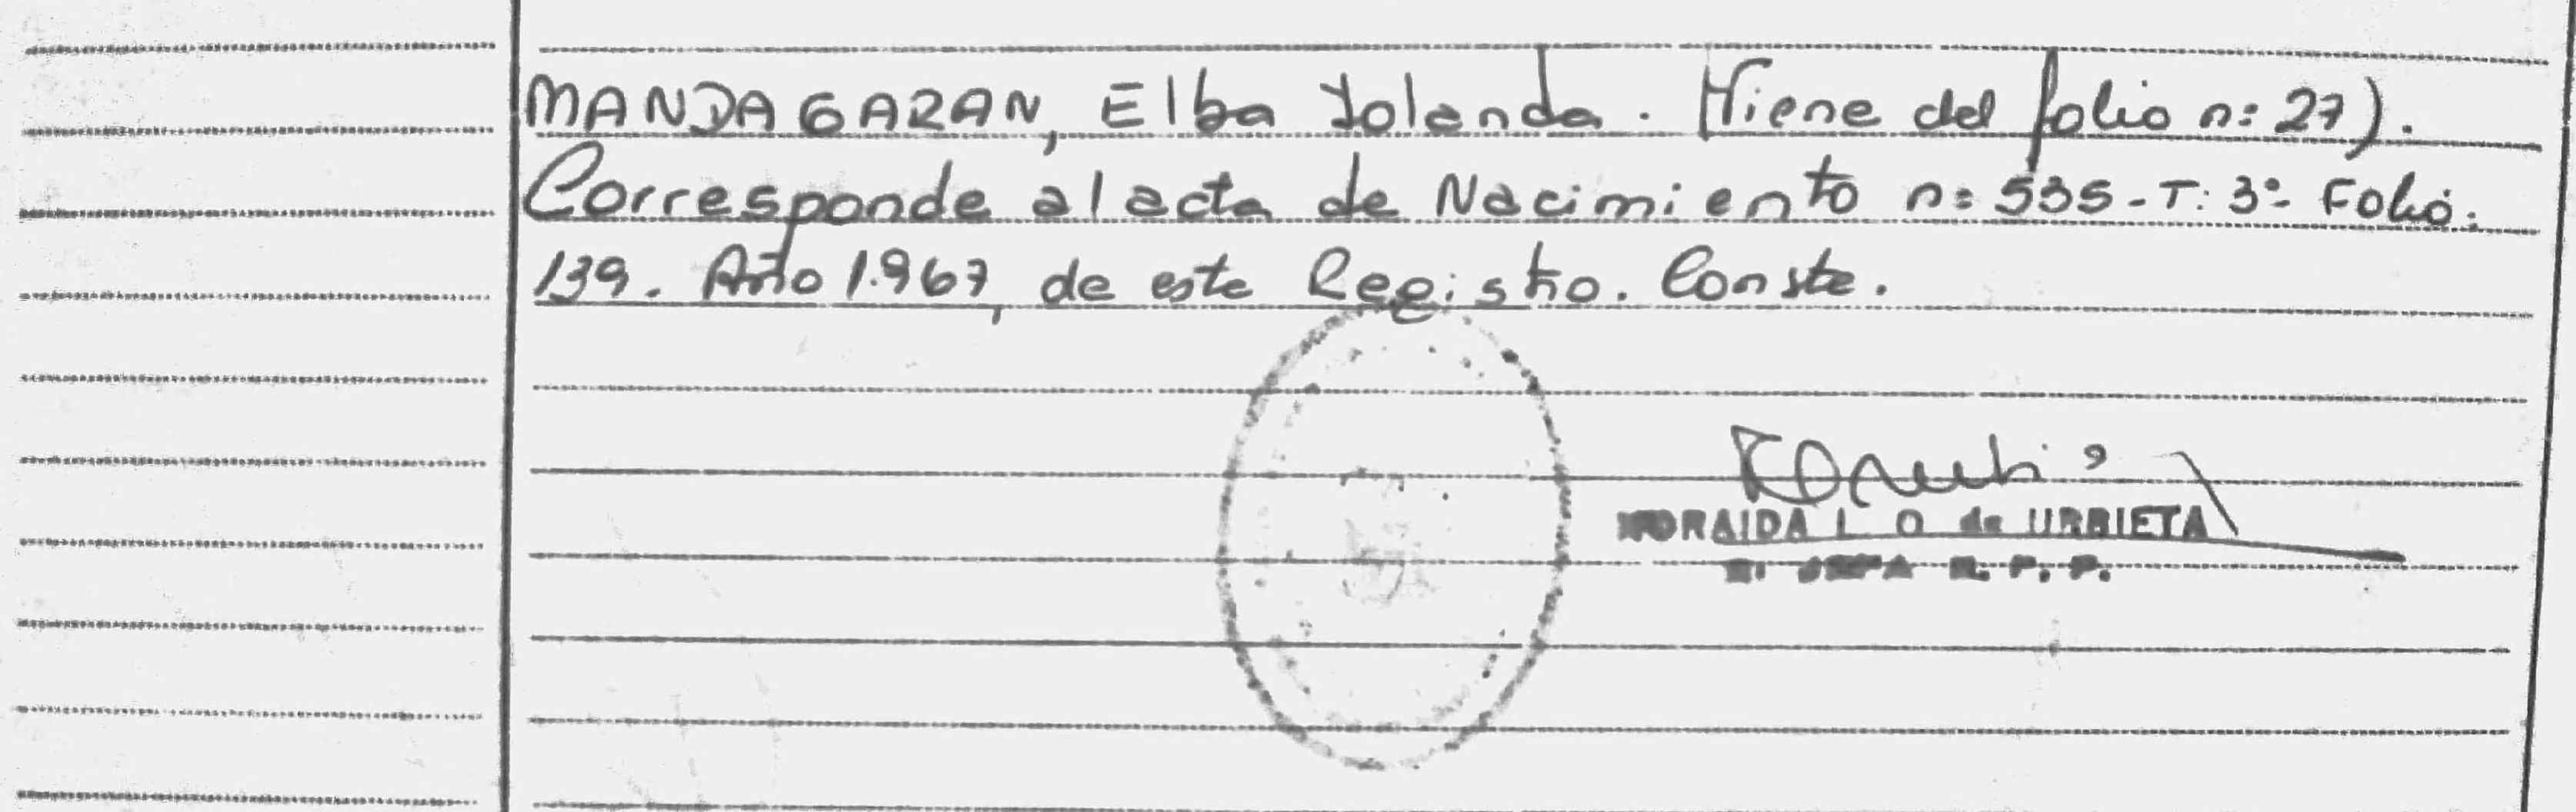 MANDAGARAN, Elba Yolanda. (Viene del folio n: 27).
Corresponde al acta de Nacimiento n: 535 - T: 3º - Folio:
139. Año 1.967, de este Registro. Conste.
L O de URBIETA
R. P. P.